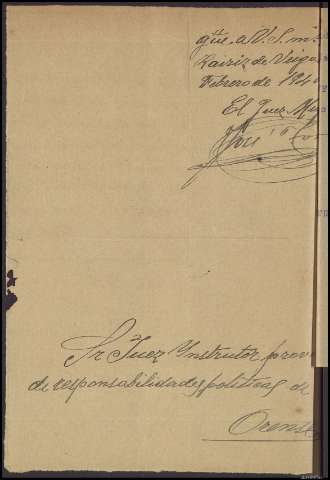 gűe. a V. S. m
Rairiz de Veiga
Febrero de 194
El Juez Mu
José
Sr Juez Ynstructor prov
de responsabilidades políticas de
Orense